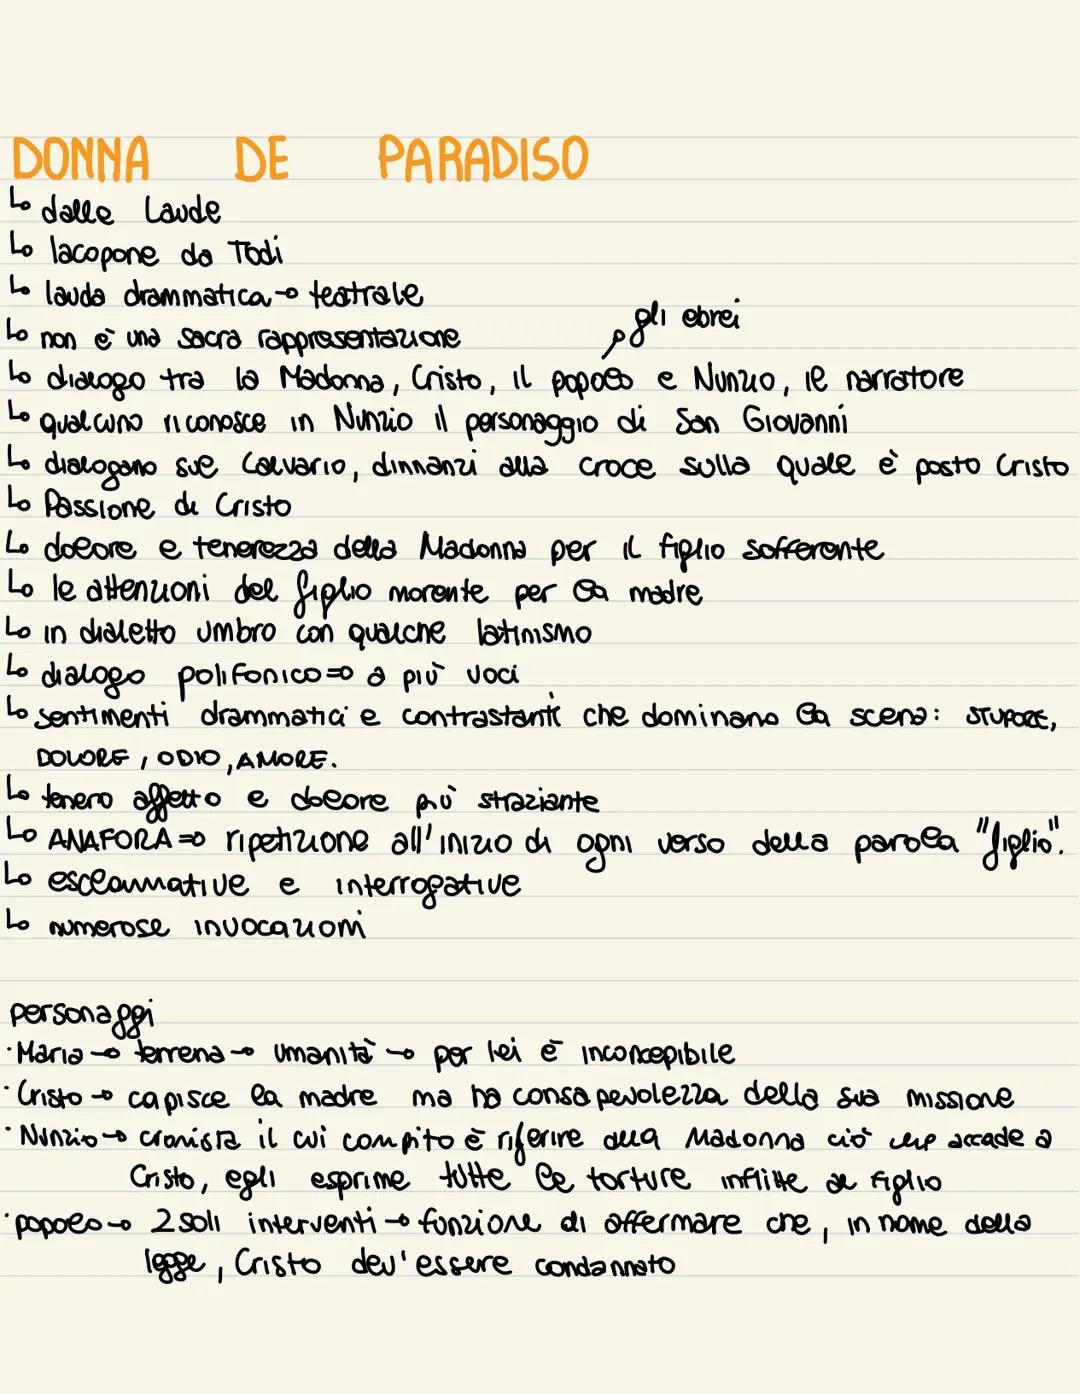 DONNA DE PARADISO
↳ dalle Laude
↳ Iacopone da Todi
↳ lauda drammatica → teatrale
gli ebrei
↳ non è una sacra rappresentazione
↳ dialogo tra la Madonna, Cristo, il popolo e Nunzio, il narratore
↳ qualcuno riconosce in Nunzio il personaggio di San Giovanni
↳ dialogano sul Calvario, dinnanzi alla croce sulla quale è posto Cristo
↳ Passione di Cristo
↳ dolore e tenerezza della Madonna per il figlio sofferente
↳ le attenzioni del figlio morente per la madre
↳ in dialetto umbro con qualche latinismo
↳ dialogo polifonico ⇒ a più voci
↳ sentimenti drammatici e contrastanti che dominano la scena: STUPORE,
DOLORE, ODIO, AMORE.
↳ tenero affetto e dolore più straziante
↳ ANAFORA ⇒ ripetizione all'inizio di ogni verso della parola "figlio".
↳ esclamative e interrogative
↳ numerose invocazioni
personaggi
· Maria → terrena → umanità → per lei è inconcepibile
· Cristo → capisce la madre ma ha consapevolezza della sua missione
· Nunzio → cronista il cui compito è riferire alla Madonna ciò che accade a
Cristo, egli esprime tutte le torture inflitte al figlio
· popolo → 2 soli interventi → funzione di affermare che, in nome della
legge, Cristo dev'essere condannato